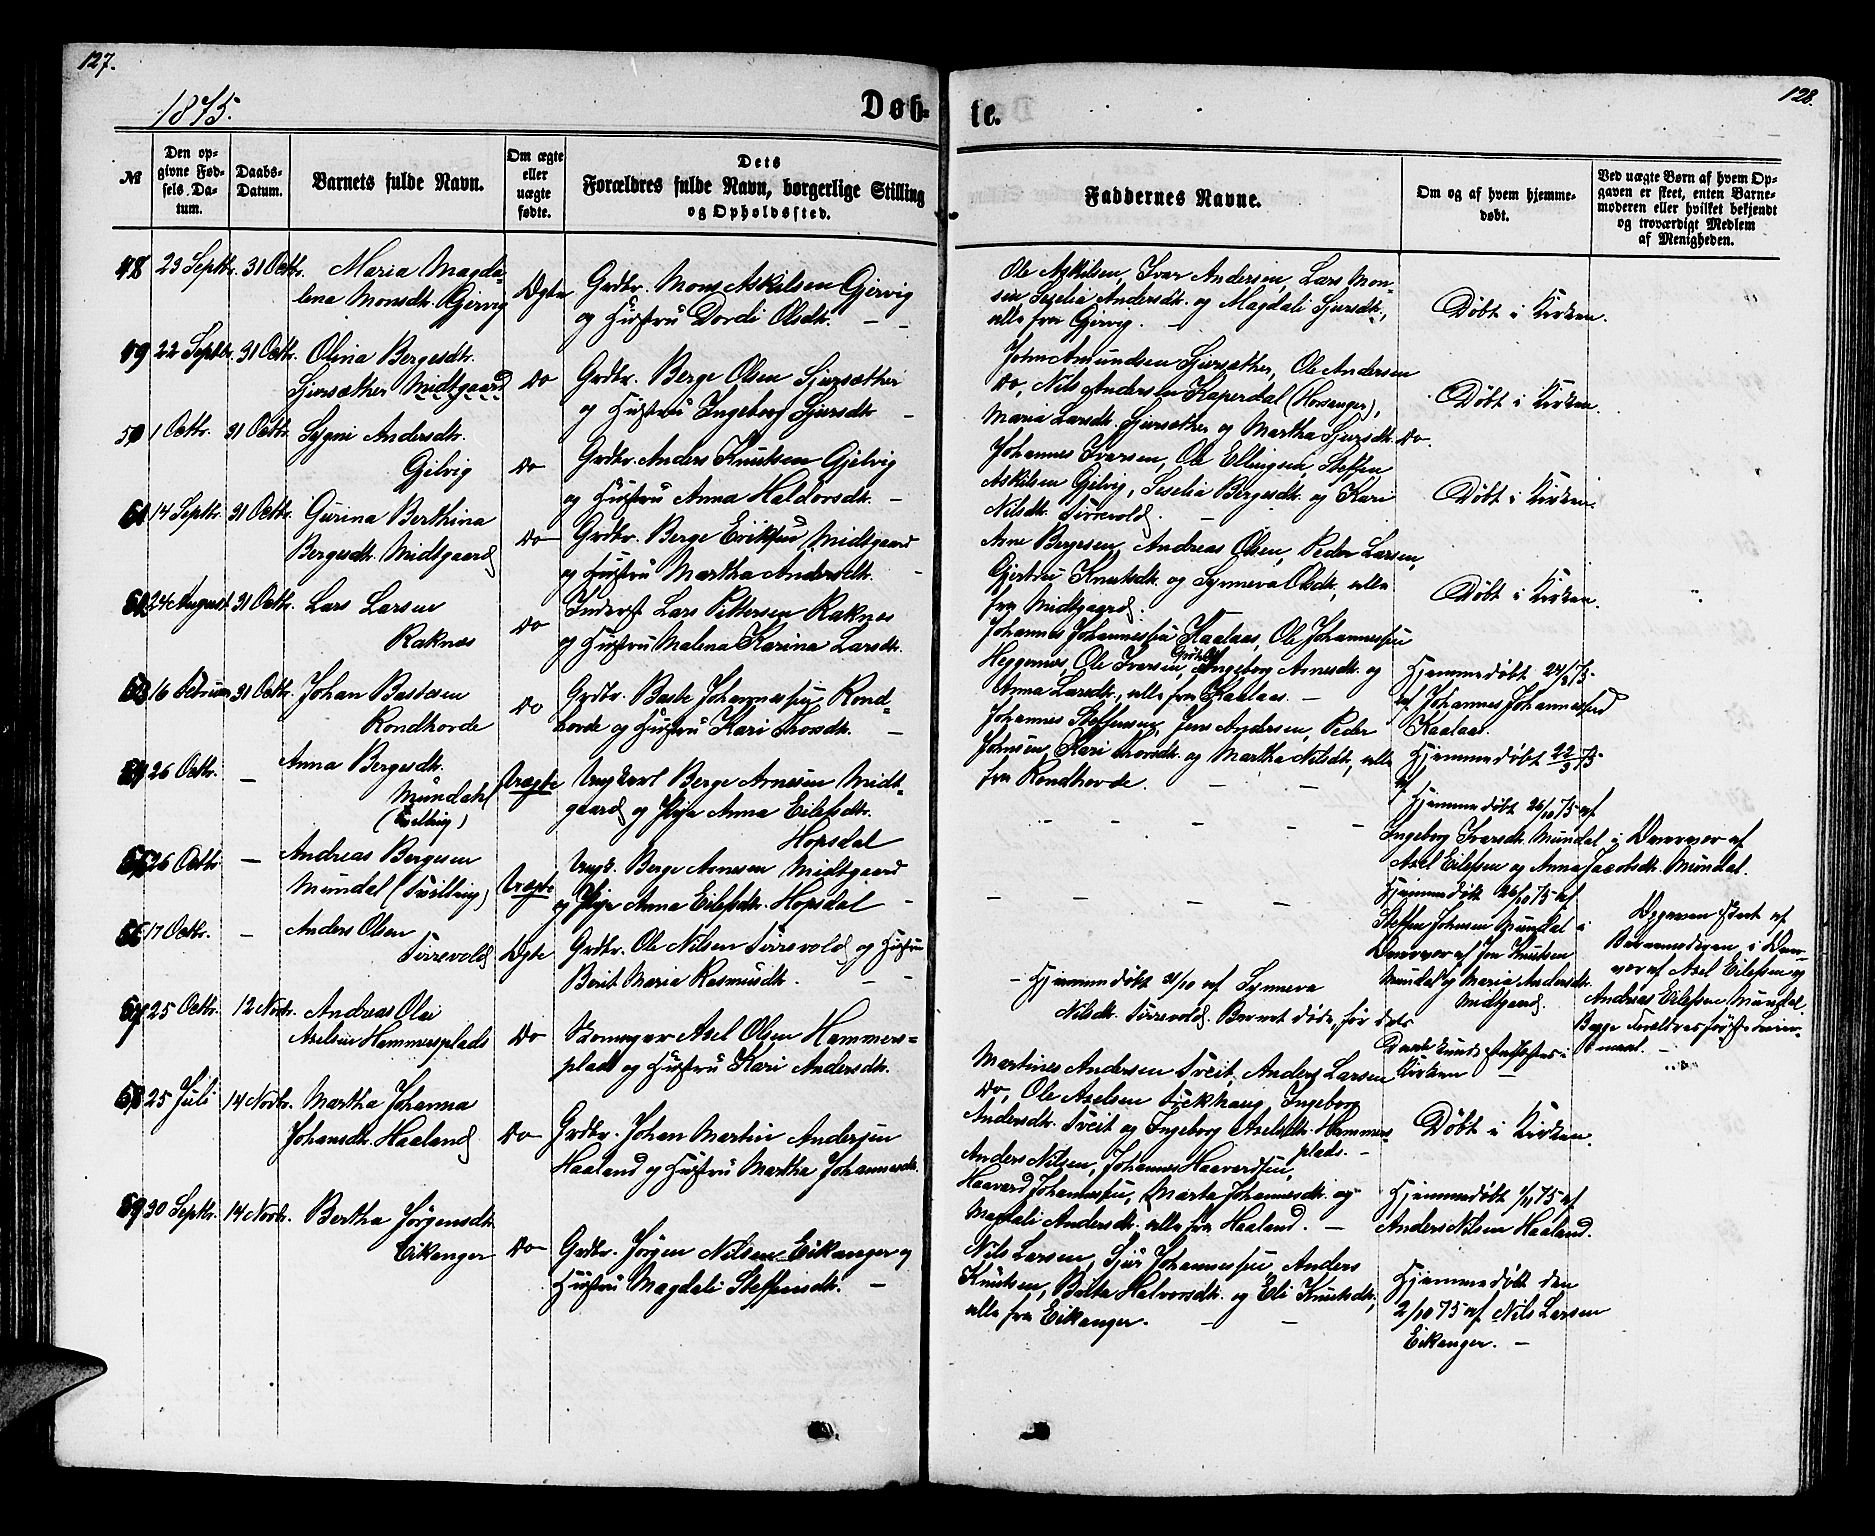 127.
1875.
Døb-
№
Den op-
givne Fød-
sels Da-
tum.
Daabs-
Datum.
Barnets fulde Navn.
Om ægte
eller
uægte
fødte.
Dets
Forældres fulde Navn, borgerlige Stilling
og Opholdssted.
48 23 Septbr. 31 Octbr. Maria Magda-
lena Monsdtr. Gjervig
Ægte
Grdbr. Mons Askilsen Gjervig
og Hustru Dordi Olsdtr.
49 22 Septbr. 31 Octbr. Olina Bergesdtr.
Sjursæther Midtgaard
Do
Grdbr. Berge Olsen Sjursæther
og Hustru Ingeborg Sjursdtr.
50 1 Octbr. 31 Octbr. Sygni Andersdtr.
Gjelvig
Do
Grdbr. Anders Knutsen Gjelvig
og Hustru Anna Haldorsdtr.
51 14 Septbr. 31 Octbr. Gurina Berthina
Bergesdtr. Midtgaard
Do
Grdbr. Berge Eriksen Midtgaard
og Hustru Martha Andersdtr.
52 24 August 31 Octbr. Lars Larsen
Raknes
Do
Inderst Lars Pettersen Raknes
og Hustru Malena Karina Larsdtr.
53 16 Februar 31 Octbr. Johan Bastesen
Rondhovde
Do
Grdbr. Baste Johannessen Rond-
hovde og Hustru Kari Thorsdtr.
54 26 Octbr. – Anna Bergesdtr.
Mundahl
(Tvilling)
Uægte
Ungkarl Berge Arnesen Midt-
gaard og Pige Anna Eilefsdtr.
Hopsdal
55 26 Octbr. – Andreas Bergesen
Mundal (Tvilling)
Uægte
Ungk. Berge Arnesen Midtgaard
og Pige Anna Eilefsdtr. Hopsdal
56 17 Octbr. – Anders Olsen
Tirrevold
Ægte
Grdbr. Ole Nilsen Tirrevold og Hustru
Berit Maria Rasmusdtr.
57 25 Octbr. 12 Novbr. Andreas Olai
Axelsen Hammersplads
Do
Skomager Axel Olsen Hammers-
plads og Hustru Kari Andersdtr.
58 25 Juli 14 Novbr. Martha Johanna
Johansdtr. Haaland
Do
Grdbr. Johan Martin Andersen
Haaland og Hustru Martha Johannesdtr.
59 30 Septbr. 14 Novbr. Bertha Jørgensdtr.
Eikanger
Do
Grdbr. Jørgen Nilsen Eikanger og
Hustru Magdali Steffensdtr.
128.
te.
Faddernes Navne.
Om og af hvem hjemme-
døbt.
Ved uægte Børn af hvem Op-
gaven er skeet, enten Barne-
moderen eller hvilket bekjendt
og troværdigt Medlem
af Menigheden.
Ole Askilsen, Ivar Andersen, Lars Mon-
sen, Seselia Andersdtr. og Magdali Sjursdtr.,
alle fra Gjervig.
Døbt i Kirken.
John Amundsen Sjursæther, Ole Andersen
Do, Nils Andersen Kaperdal (Hosanger),
Maria Larsdtr. Sjursæther og Martha Sjursdtr. Do.
Døbt i Kirken.
Johannes Ivarsen, Ole Ellingsen, Steffen
Askilsen Gjelvig, Seselia Bergesdtr. og Kari
Nilsdtr. Tirrevold.
Døbt i Kirken.
Arne Bergesen, Andreas Olsen, Peder Larsen,
Gjertrud Knutsdtr. og Synneva Olsdtr., alle
fra Midtgaard.
Døbt i Kirken.
Johannes Johannessen Kaalaas, Ole Johannessen
Heggernes, Ole Iversen, Ingeborg Arnesdtr. og
Anna Larsdtr., alle fra Kaalaas.
Hjemmedøbt 24/8 75
af Johannes Johannessen
Kaalaas.
Johannes Steffensen, Jens Andersen, Peder
Johnsen, Kari Thorsdtr. og Martha Nilsdtr., alle
fra Rondhovde.
Hjemmedøbt 22/3 75
af
Hjemmedøbt 26/10 75 af
Ingeborg Ivarsdtr. Mundal i Overvær af
Axel Eilefsen og Anna Jacobsdtr. Mundal.
Hjemmedøbt 26/10 75 af
Steffen Johnsen Mundal i
Overvær af Jon Knutsen
Mundal og Maria Andersdtr.
Midtgaard.
Opgaven skeet af
Barnemoderen, i Over-
vær af Axel Eilefsen og
Andreas Eilefsen Mundal.
Begge Forældres første Leier-
maal.
– Hjemmedøbt 31/10 af Synneva
Nilsdtr. Tirrevold. Barnet døde, før dets
Daab kunde stadfæstes i
Kirken
Martines Andersen Tveit, Anders Larsen
Do, Ole Axelsen Sækhaug, Ingeborg
Andersdtr. Tveit og Ingeborg Axelsdtr. Hammers-
plads.
Døbt i Kirken.
Anders Nilsen, Johannes Haavardsen,
Haavard Johannessen, Marta Johannesdtr. og
Magdali Andersdtr., alle fra Haaland.
Anders Nilsen Haaland.
Nils Larsen, Sjur Johannessen, Anders
Knutsen, Brita Halvorsdtr. og Eli Knutsdtr.,
alle fra Eikanger.
Hjemmedøbt den
2/10 75 af Nils Larsen
Eikanger.